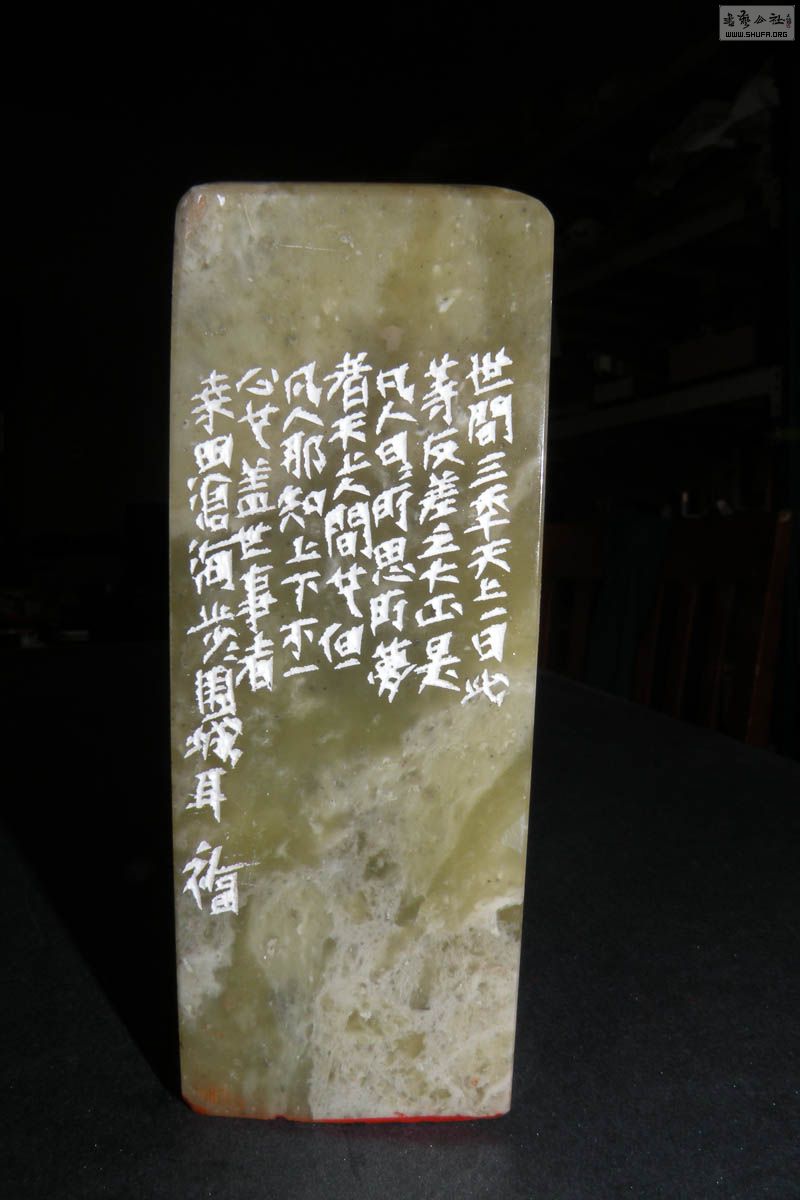 世間三年天上一日此
等反差之大正是
凡人日〻所思所夢
者天上人間但
凡人那知上下不一
盖世事者
桒田滄海步〻圍城耳
書藝公社
WWW.SHUFA.ORG